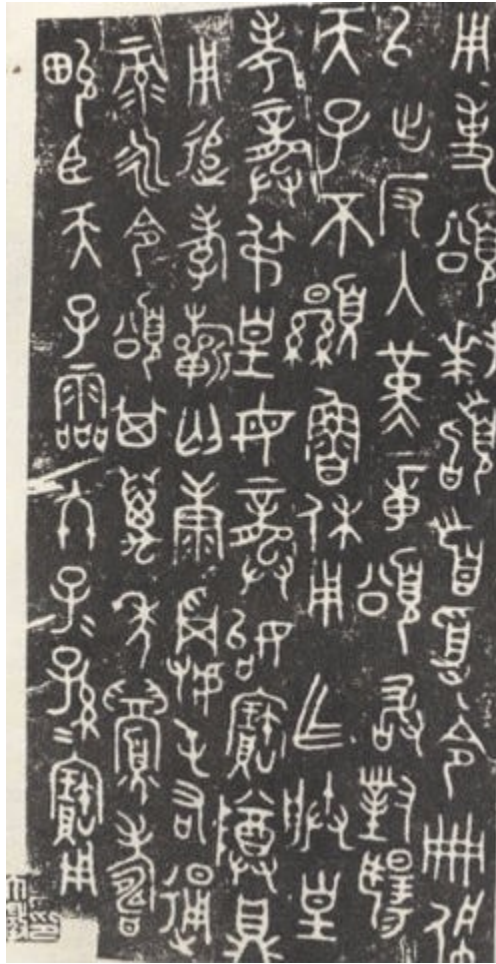 用事頌拜𩒨首受令冊佩
㠯出反入堇章頌敢對揚
天子不顯魯休用乍朕皇
考龏弔皇母龏始寶尊鼎
用追孝𣄨匄康屯右通
彔永令頌其萬年眉壽
畯臣天子霝冬子〻孫〻寶用